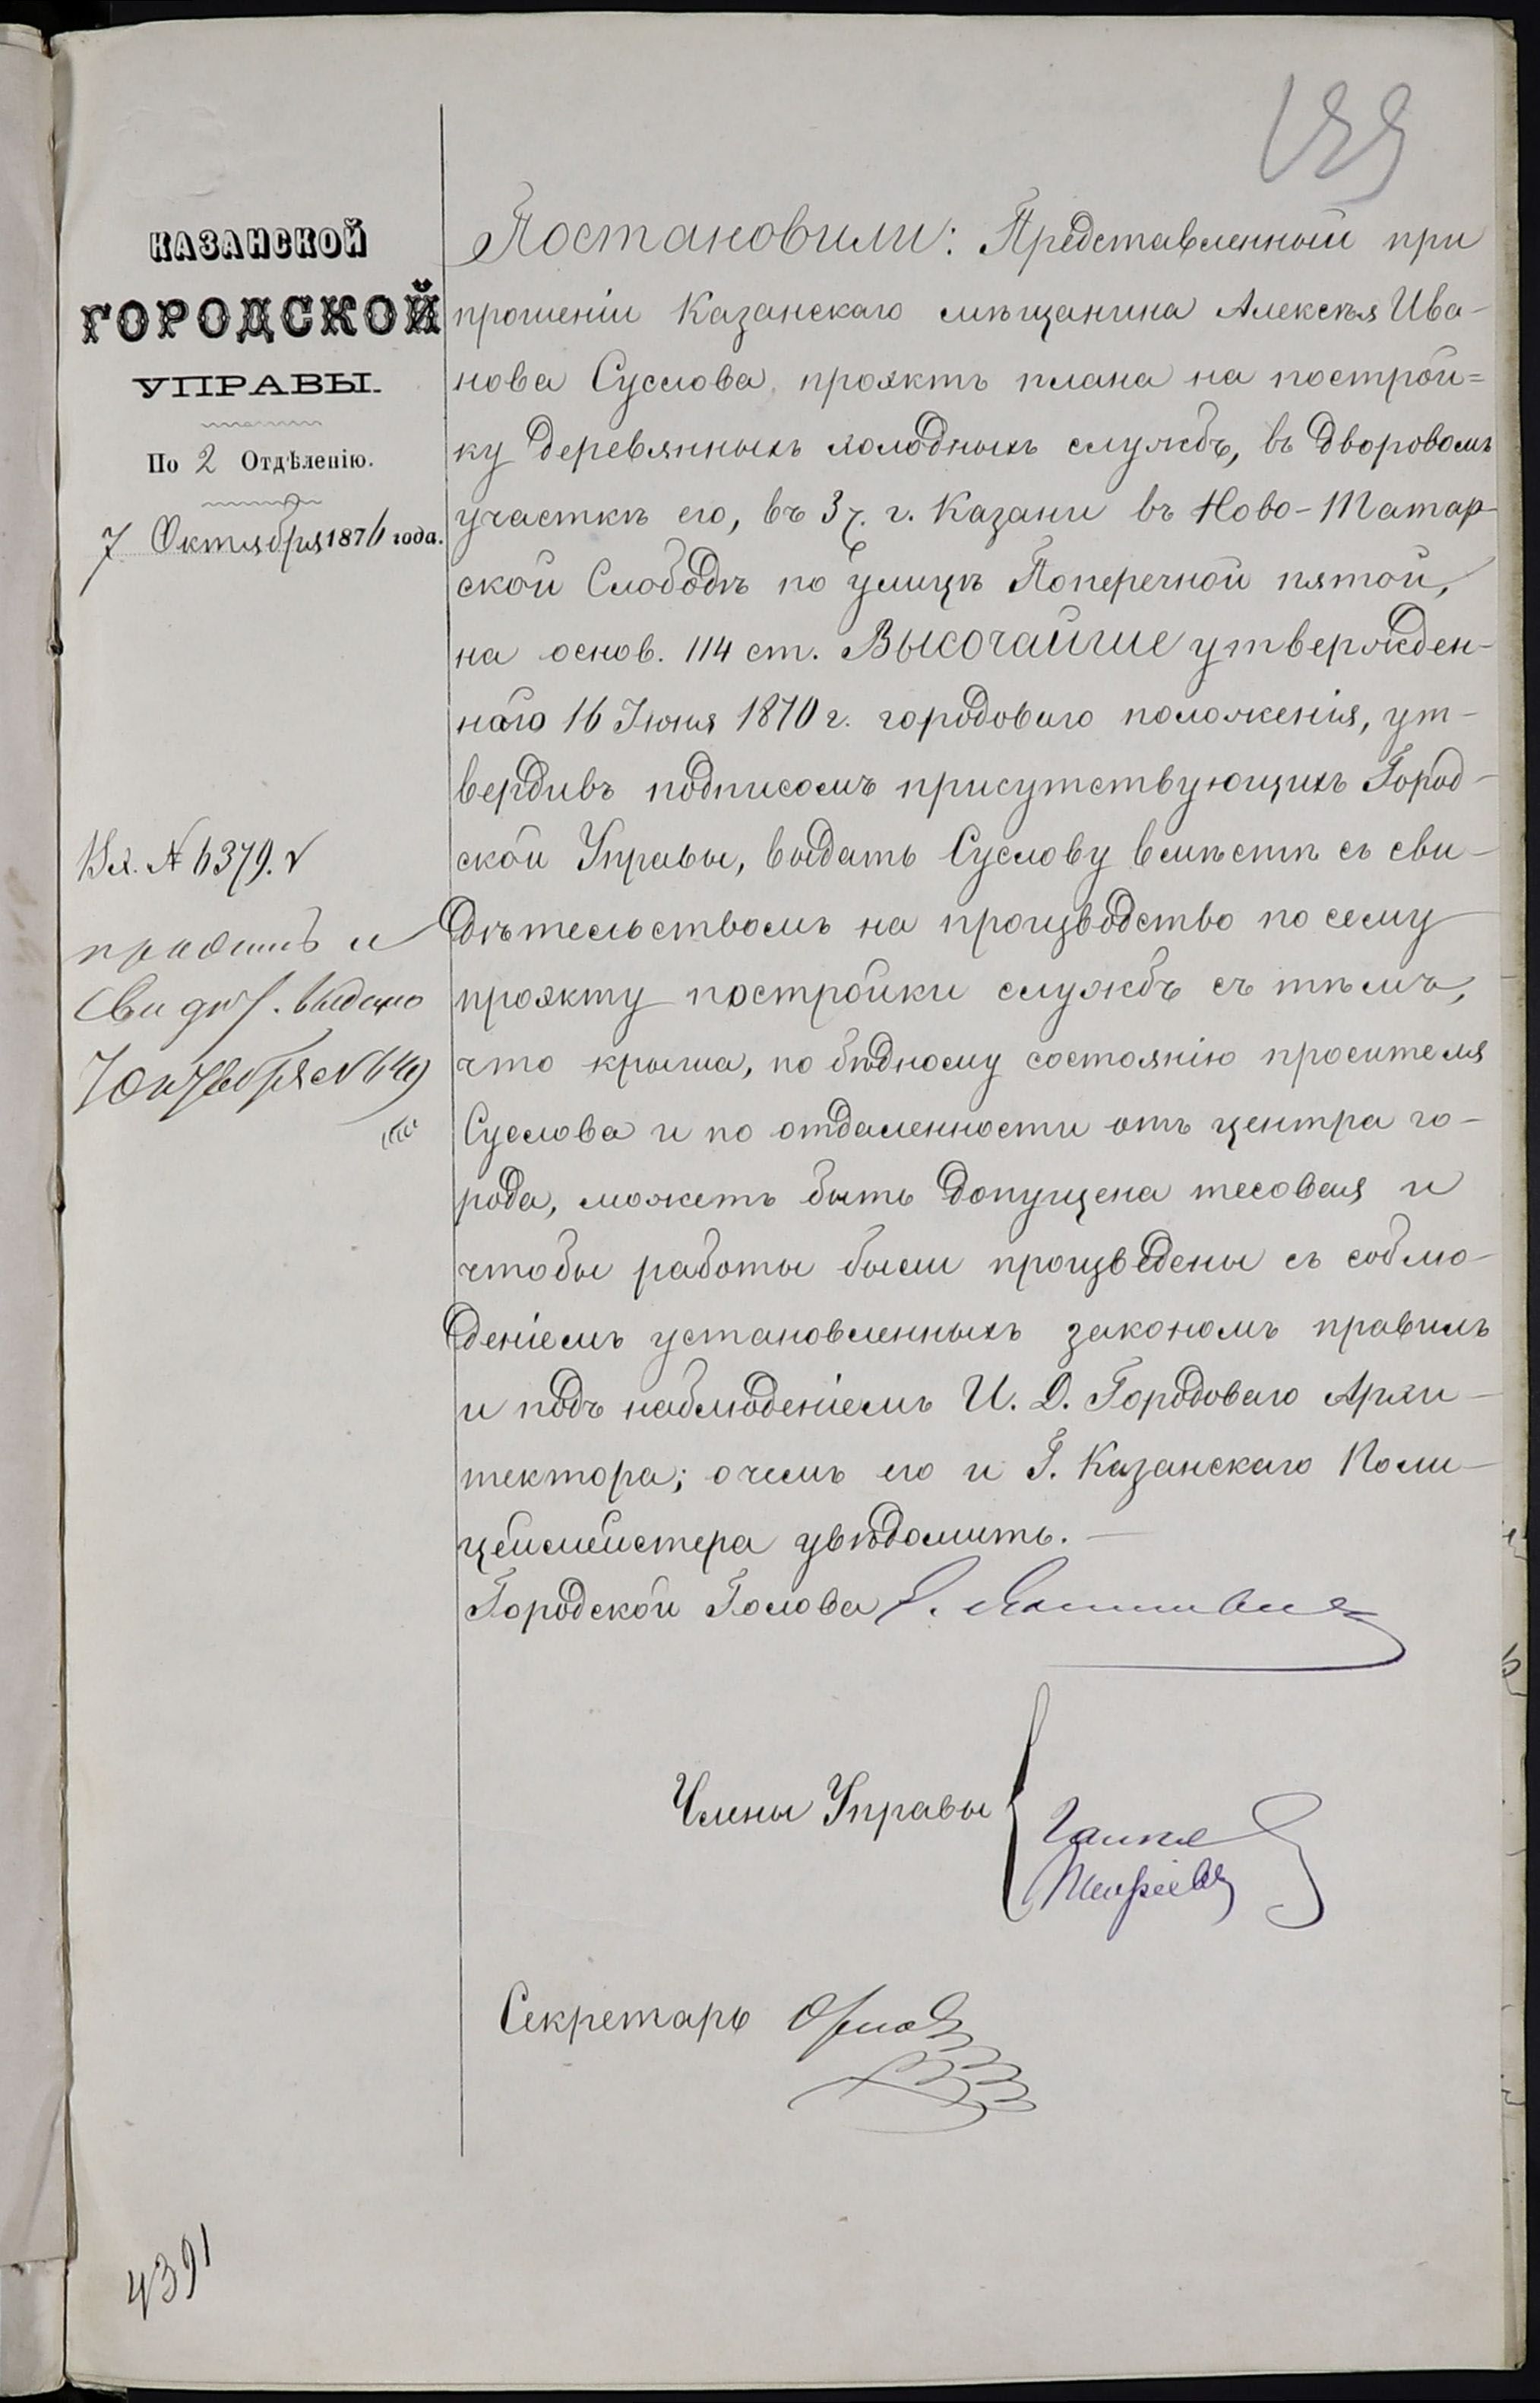 188
КАЗАНСКОЙ
ГОРОДСКОЙ
УПРАВЫ.
По 2 Отдѣленію.
7 Октября 1876 года.
Вх. № 6379.
проектъ и
Свидѣт. выдано
7 Октября №
4391
Постановили: Представленный при
прошеніи Казанскаго мѣщанина Алексѣя Ива-
нова Суслова проэктъ плана на построй=
ку деревянныхъ холодныхъ службъ, въ дворовомъ
участкѣ его, въ 3 ч. г. Казани въ Ново-Татар-
ской Слободѣ по улицѣ Поперечной пятой,
на основ. 114 ст. Высочайше утвержден-
наго 16 Іюня 1870 г. городоваго положенія, ут-
вердивъ подписомъ присутствующихъ Город-
ской Управы, выдать Суслову вмѣстѣ съ сви-
дѣтельствомъ на производство по сему
проэкту постройки службъ съ тѣмъ,
что крыша, по бѣдному состоянію просителя
Суслова и по отдаленности отъ центра го-
рода, можетъ быть допущена тесовая и
чтобы работы были произведены съ соблю-
деніемъ установленныхъ закономъ правилъ
и подъ наблюденіемъ И. Д. Городоваго Архи-
тектора; о чемъ его и Г. Казанскаго Поли-
цеймейстера увѣдомить. —
Городской Голова
Члены Управы
Секретарь Орлов